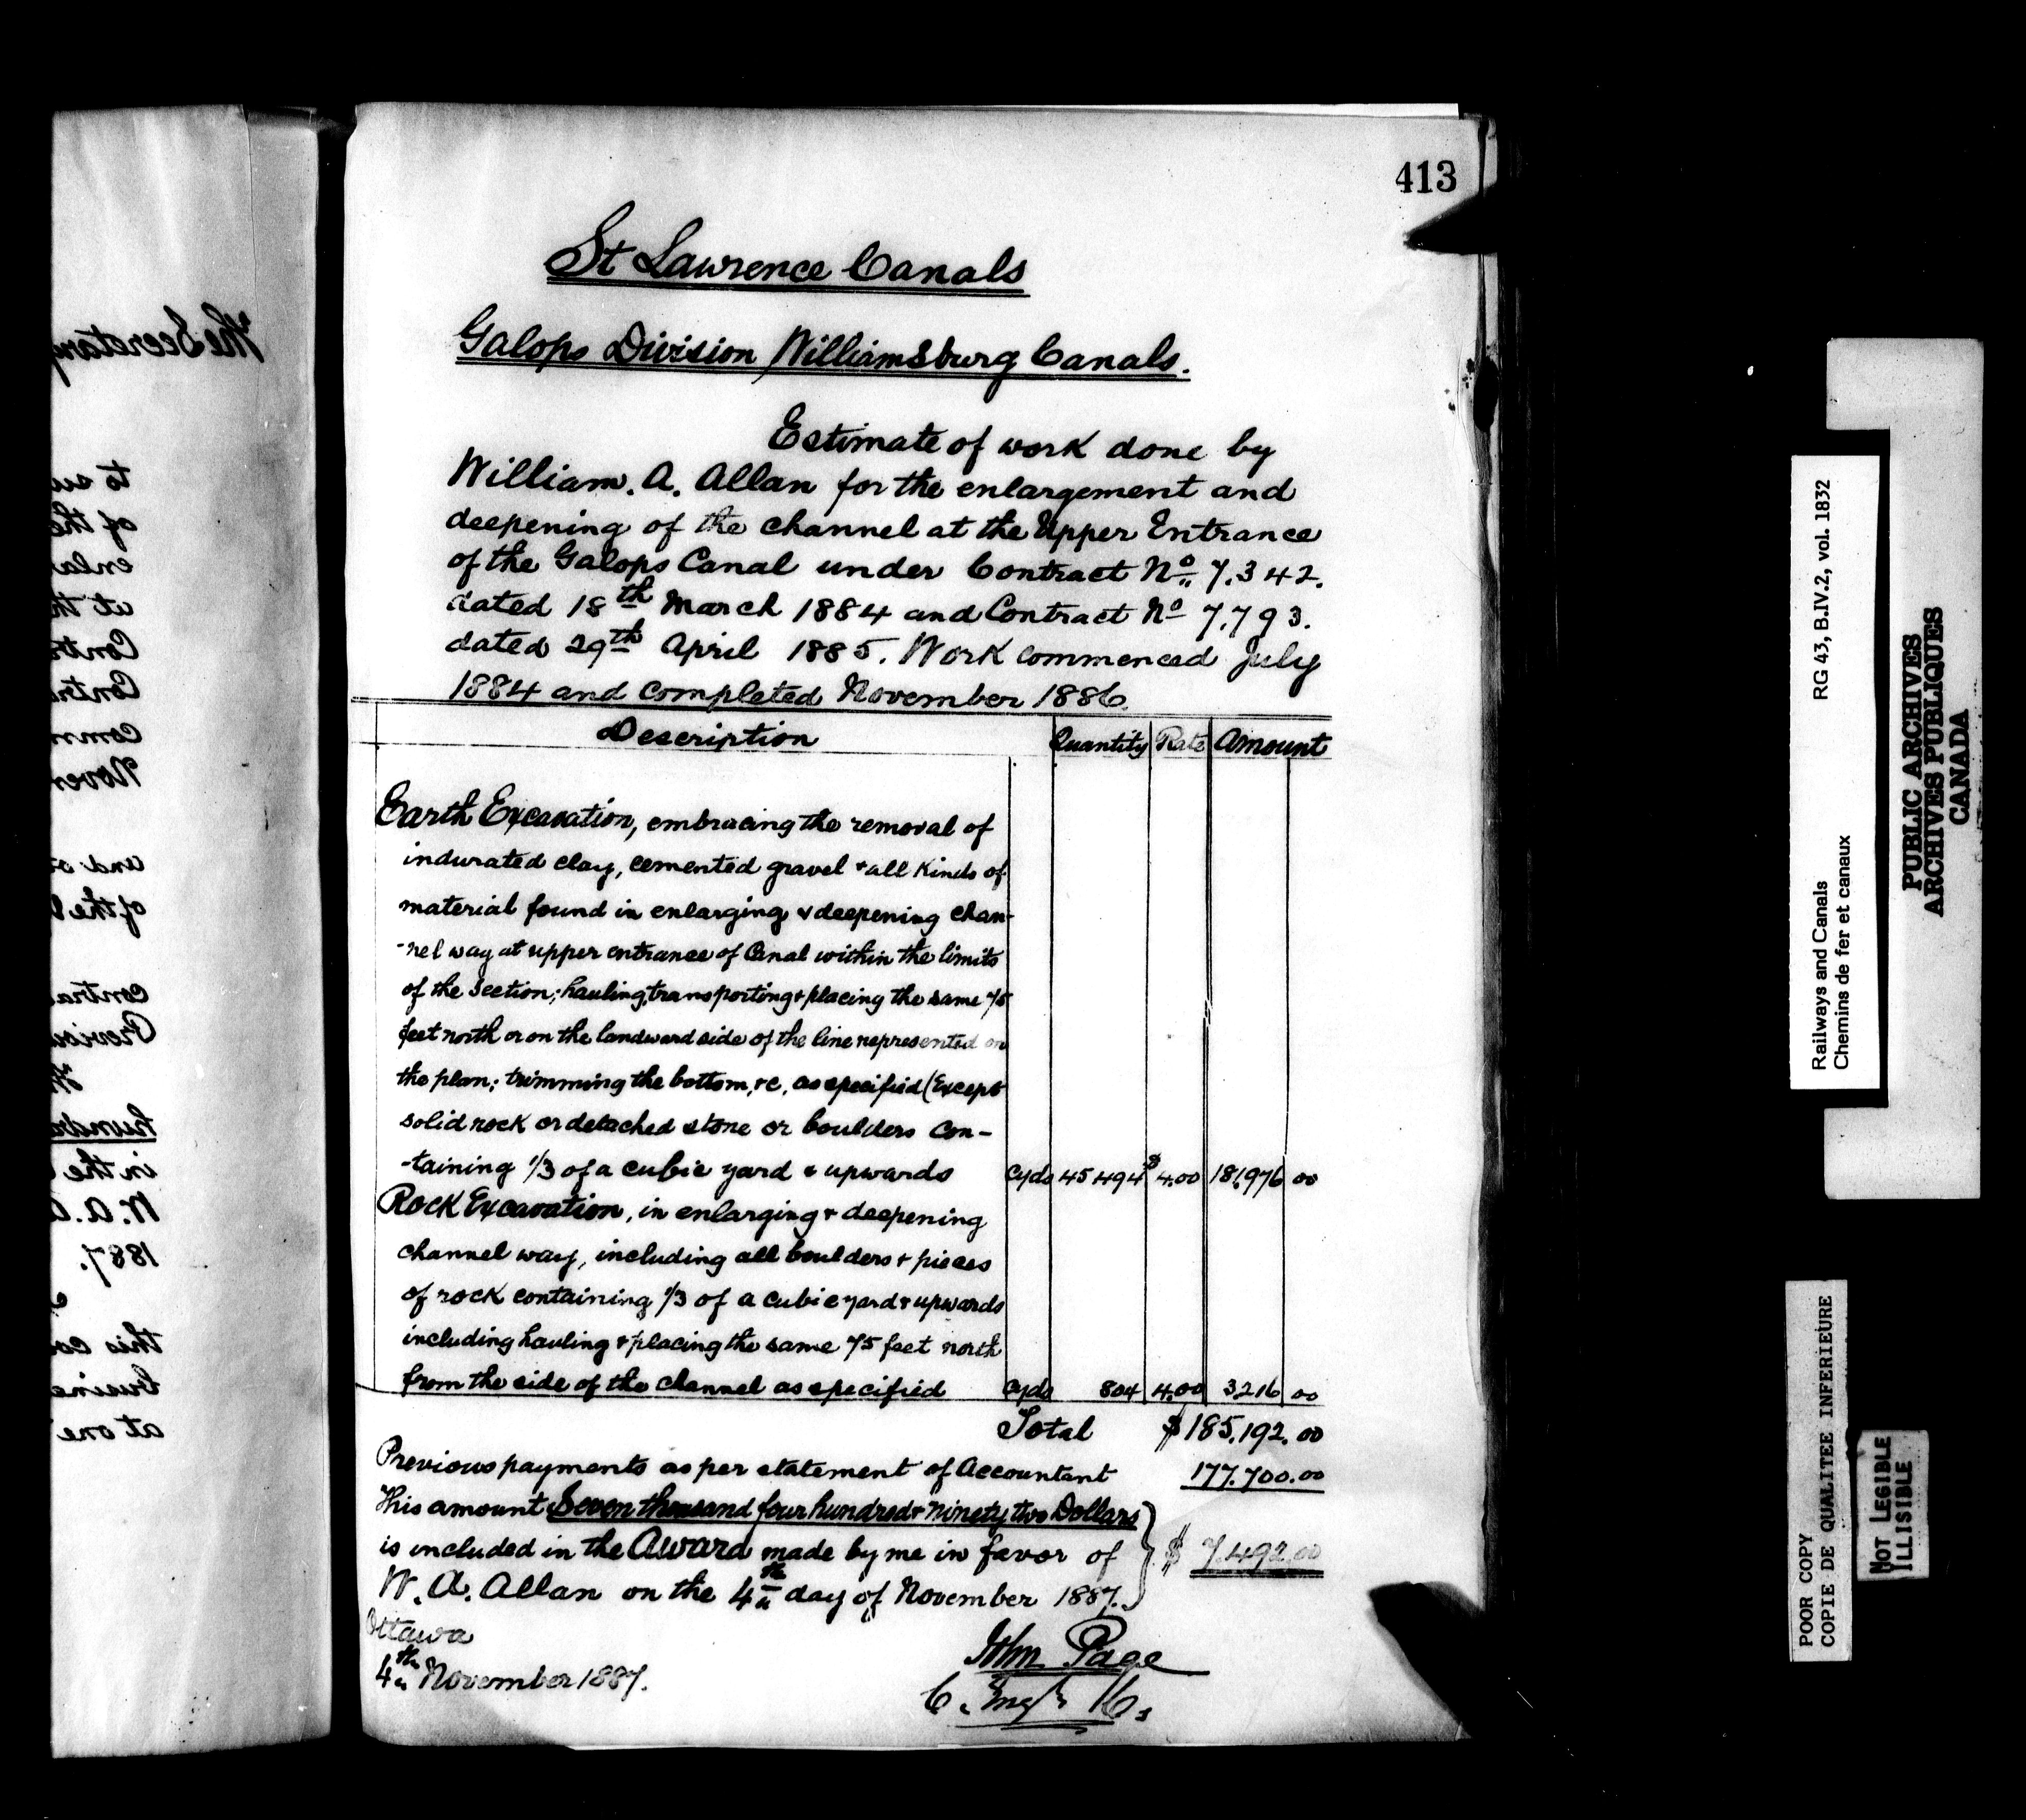 413
St Lawrence Canals
Galops Division Williamsburg Canals.
Estimate of work done by
William. A. Allan for the enlargement and
deepening of the channel at the Upper Entrance
of the Galops Canal under Contract No. 7.342.
dated 18th March 1884 and Contract No 7.793.
dated 29th April 1885. Work commenced July
1884 and completed November 1886.
Description Quantity Rate Amount
Earth Excavation, embracing the removal of
indurated clay, cemented gravel + all kinds of
material found in enlarging & deepening chan-
-nel way at upper entrance of Canal within the limits
of the Section; hauling, transporting + placing the same 75
feet north or on the landward side of the line represented on
the plan; trimming the bottom, &c, as specified (Except
solid rock or detached stone or boulders con-
-taining 1/3 of a cubic yard & upwards Cyds 45494 $4.00 181,976 00
Rock Excavation, in enlarging & deepening
channel way, including all boulders + pieces
of rock containing 1/3 of a cubic yard & upwards
including hauling + placing the same 75 feet north
from the side of the channel as specified Cyds 804 4.00 3,216 00
Total $185,192.00
Previous payments as per statement of Accountant 177.700.00
This amount Seven thousand four hundred & ninety two Dollars
is included in the Award made by me in favor of $ 7,492.00
W. A. Allan on the 4th day of November 1887.
Ottawa
4th November 1887.
John Page
The Secretary
to su
of the
enla
at th
Contr
Contra
comm
Novem
and o
of the
contra
Previou
hundr
in the
W. A. A
1887.
this co
busine
at one
RG 43, B.IV.2, vol. 1832
Railways and Canals
Chemins de fer et canaux
PUBLIC ARCHIVES
ARCHIVES PUBLIQUES
CANADA
POOR COPY
COPIE DE QUALITEE INFERIEURE
NOT LEGIBLE
ILLISIBLE